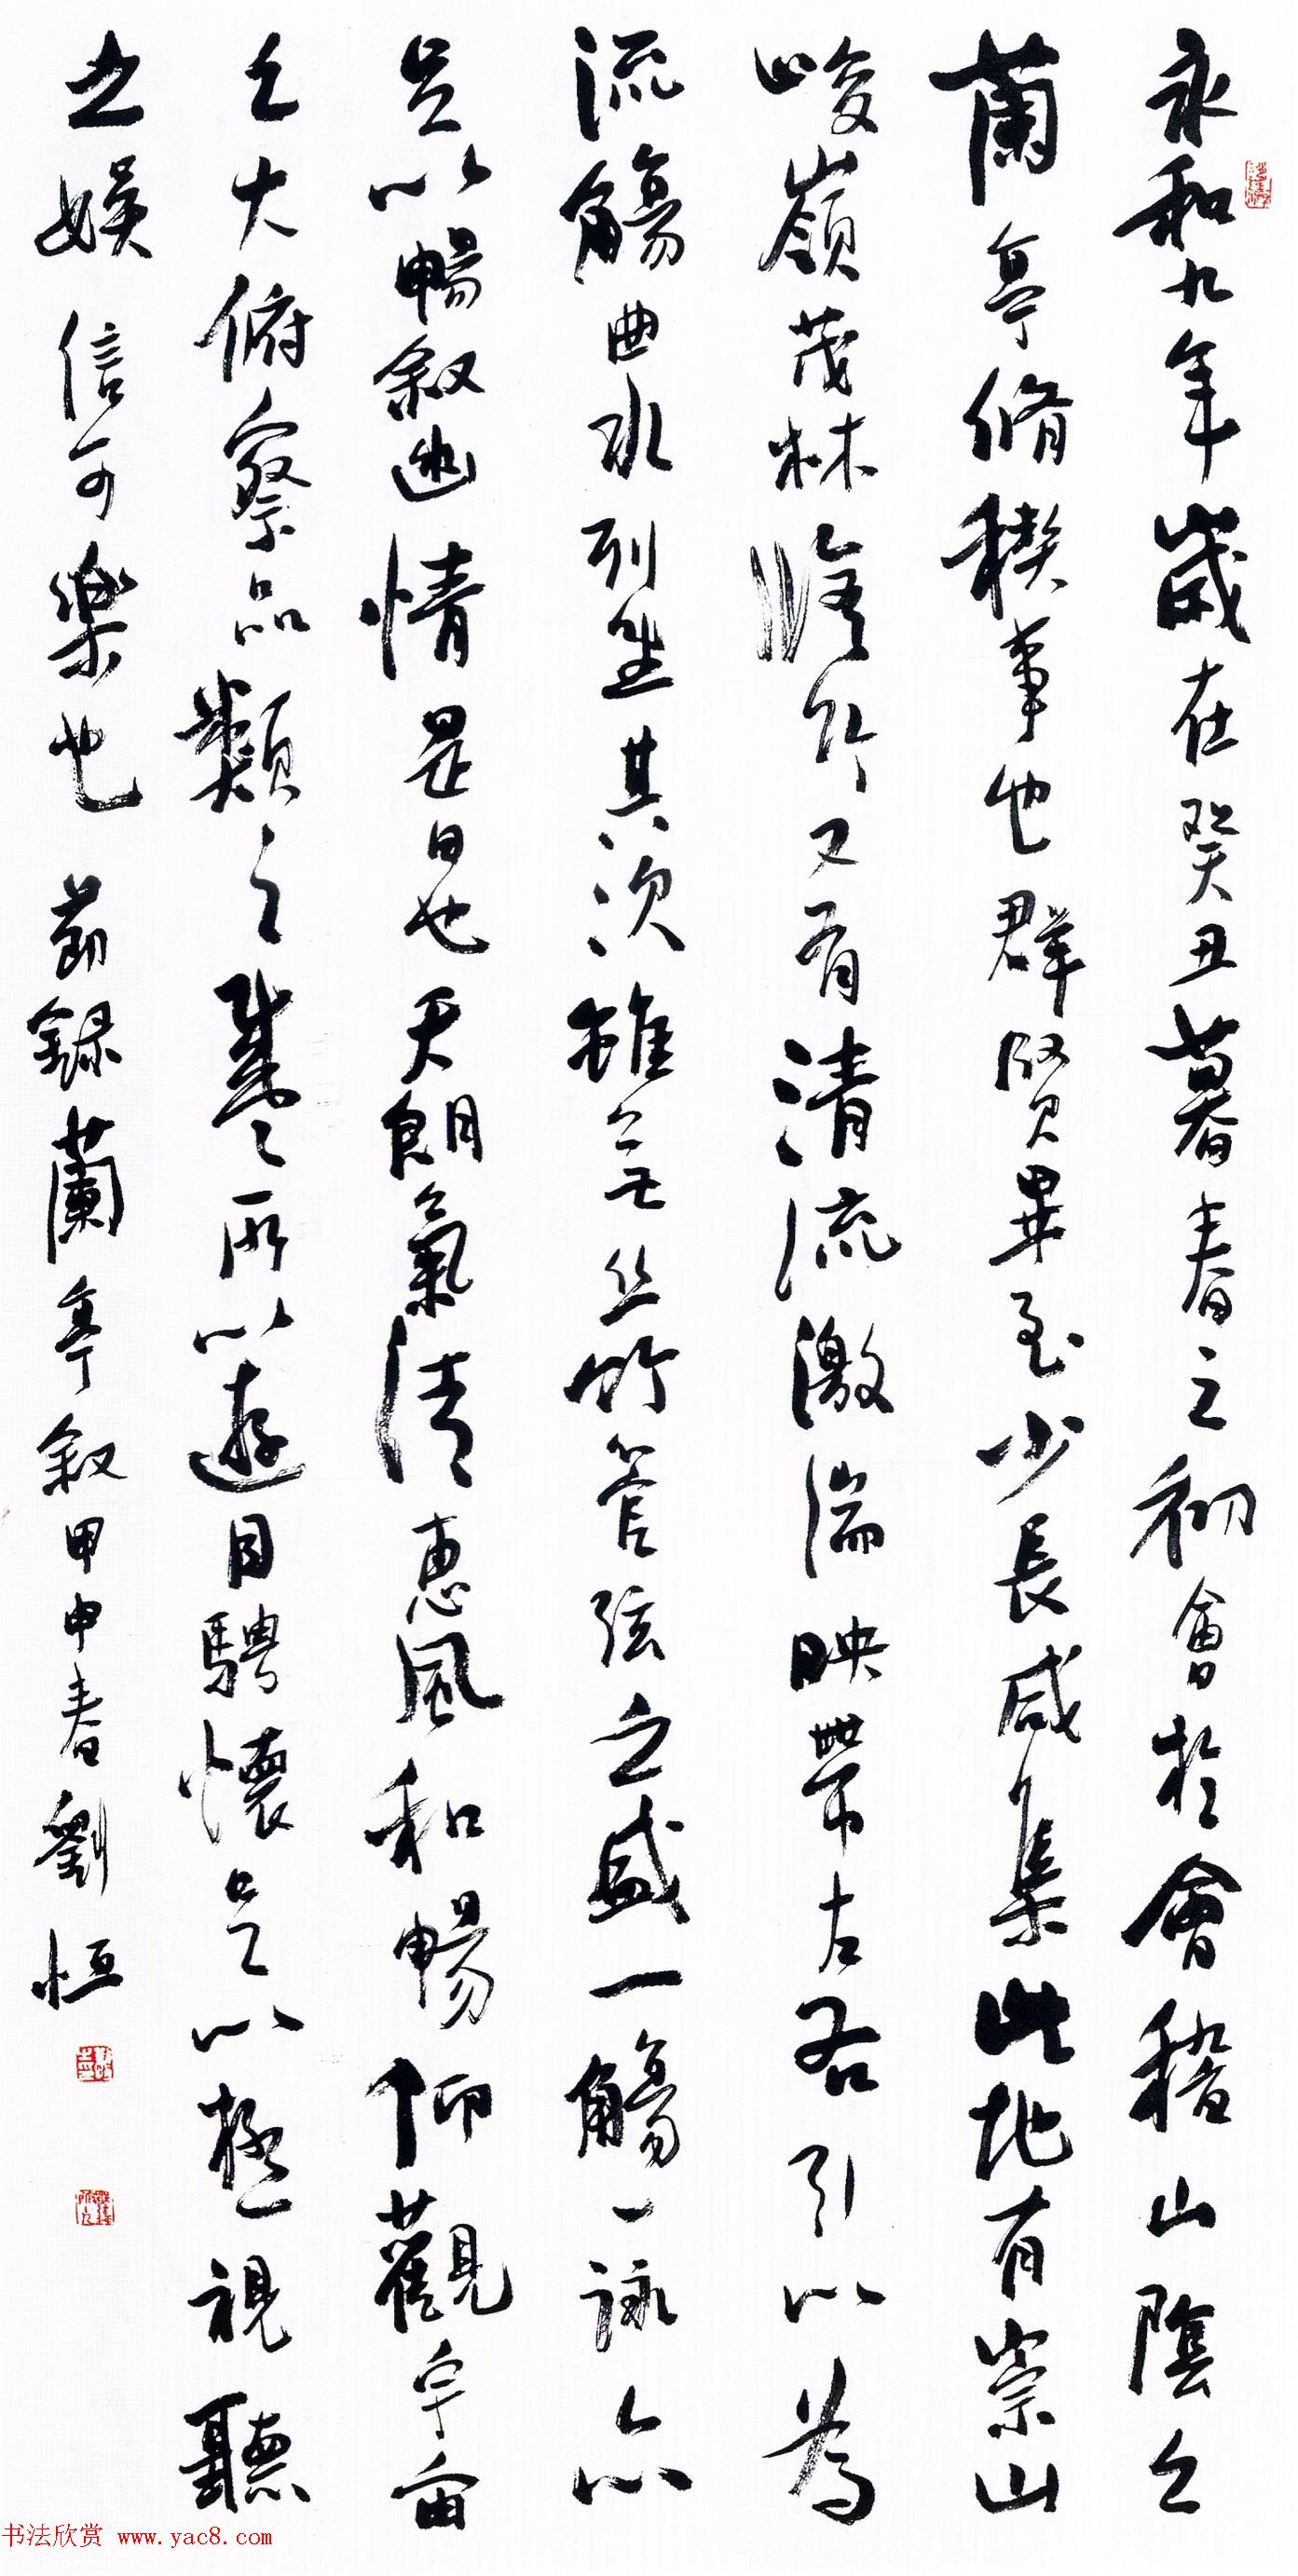 永和九年歲在癸丑暮春之初會於會稽山陰之
蘭亭脩稧事也群賢畢至少長咸集此地有崇山
峻嶺茂林脩竹又有清流激湍映帶左右引以為
流觴曲水列坐其次雖無丝竹管弦之盛一觴一詠亦
足以暢叙幽情是日也天朗氣清惠風和暢仰觀宇宙
之大俯察品類之盛所以遊目騁懷足以極視聽
之娛信可樂也 節錄蘭亭叙甲申春劉恒
书法欣赏 www.yac8.com